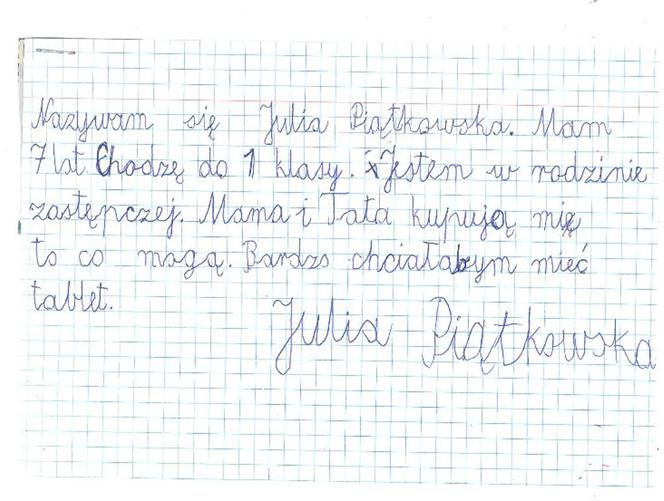 Nazywam się Julia Piątkowska. Mam
7 lat. Chodzę do 1 klasy. Jestem w rodzinie
zastępczej. Mama i Tata kupują mię
to co mogą. Bardzo chciałabym mieć
tablet.
Julia Piątkowska